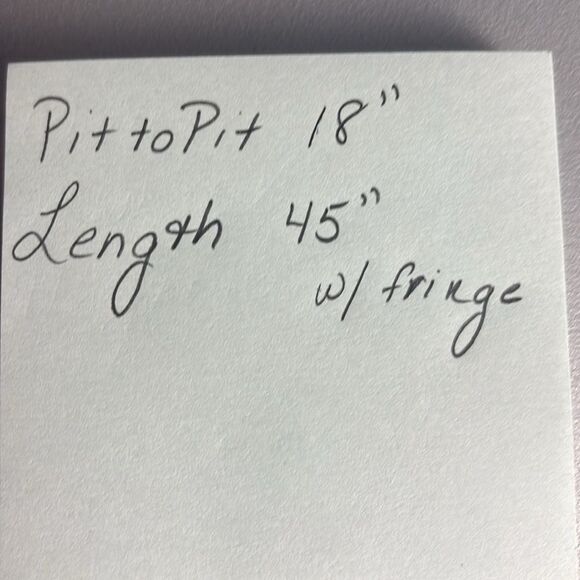 Pit to Pit 18"
Length 45"
w/ fringe